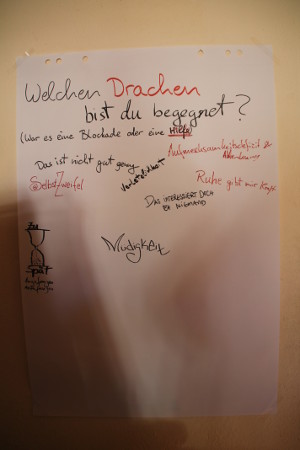 Welchen Drachen
bist du begegnet?
(War es eine Blockade oder eine Hilfe)
Das ist nicht gut genug
Verletzlichkeit
Selbstzweifel
Ruhe gibt mir Kraft
DAS INTERESSIERT DOCH
EH NIEMAND
Müdigkeit
zu
spät